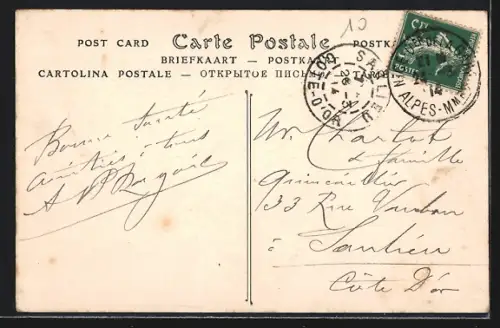 10
POST CARD Carte Postale POSTKA
BRIEFKAART — POSTKA
CARTOLINA POSTALE — ОТКРЫТОЕ ПИСЬМ
SAULIEU
CÔTE-D'OR
ALPES-MM
14
Bonne santé
amitiés à tous
Mr Chartot
& famille
quincaillier
33 Rue Vauban
à Saulieu
Côte D'or